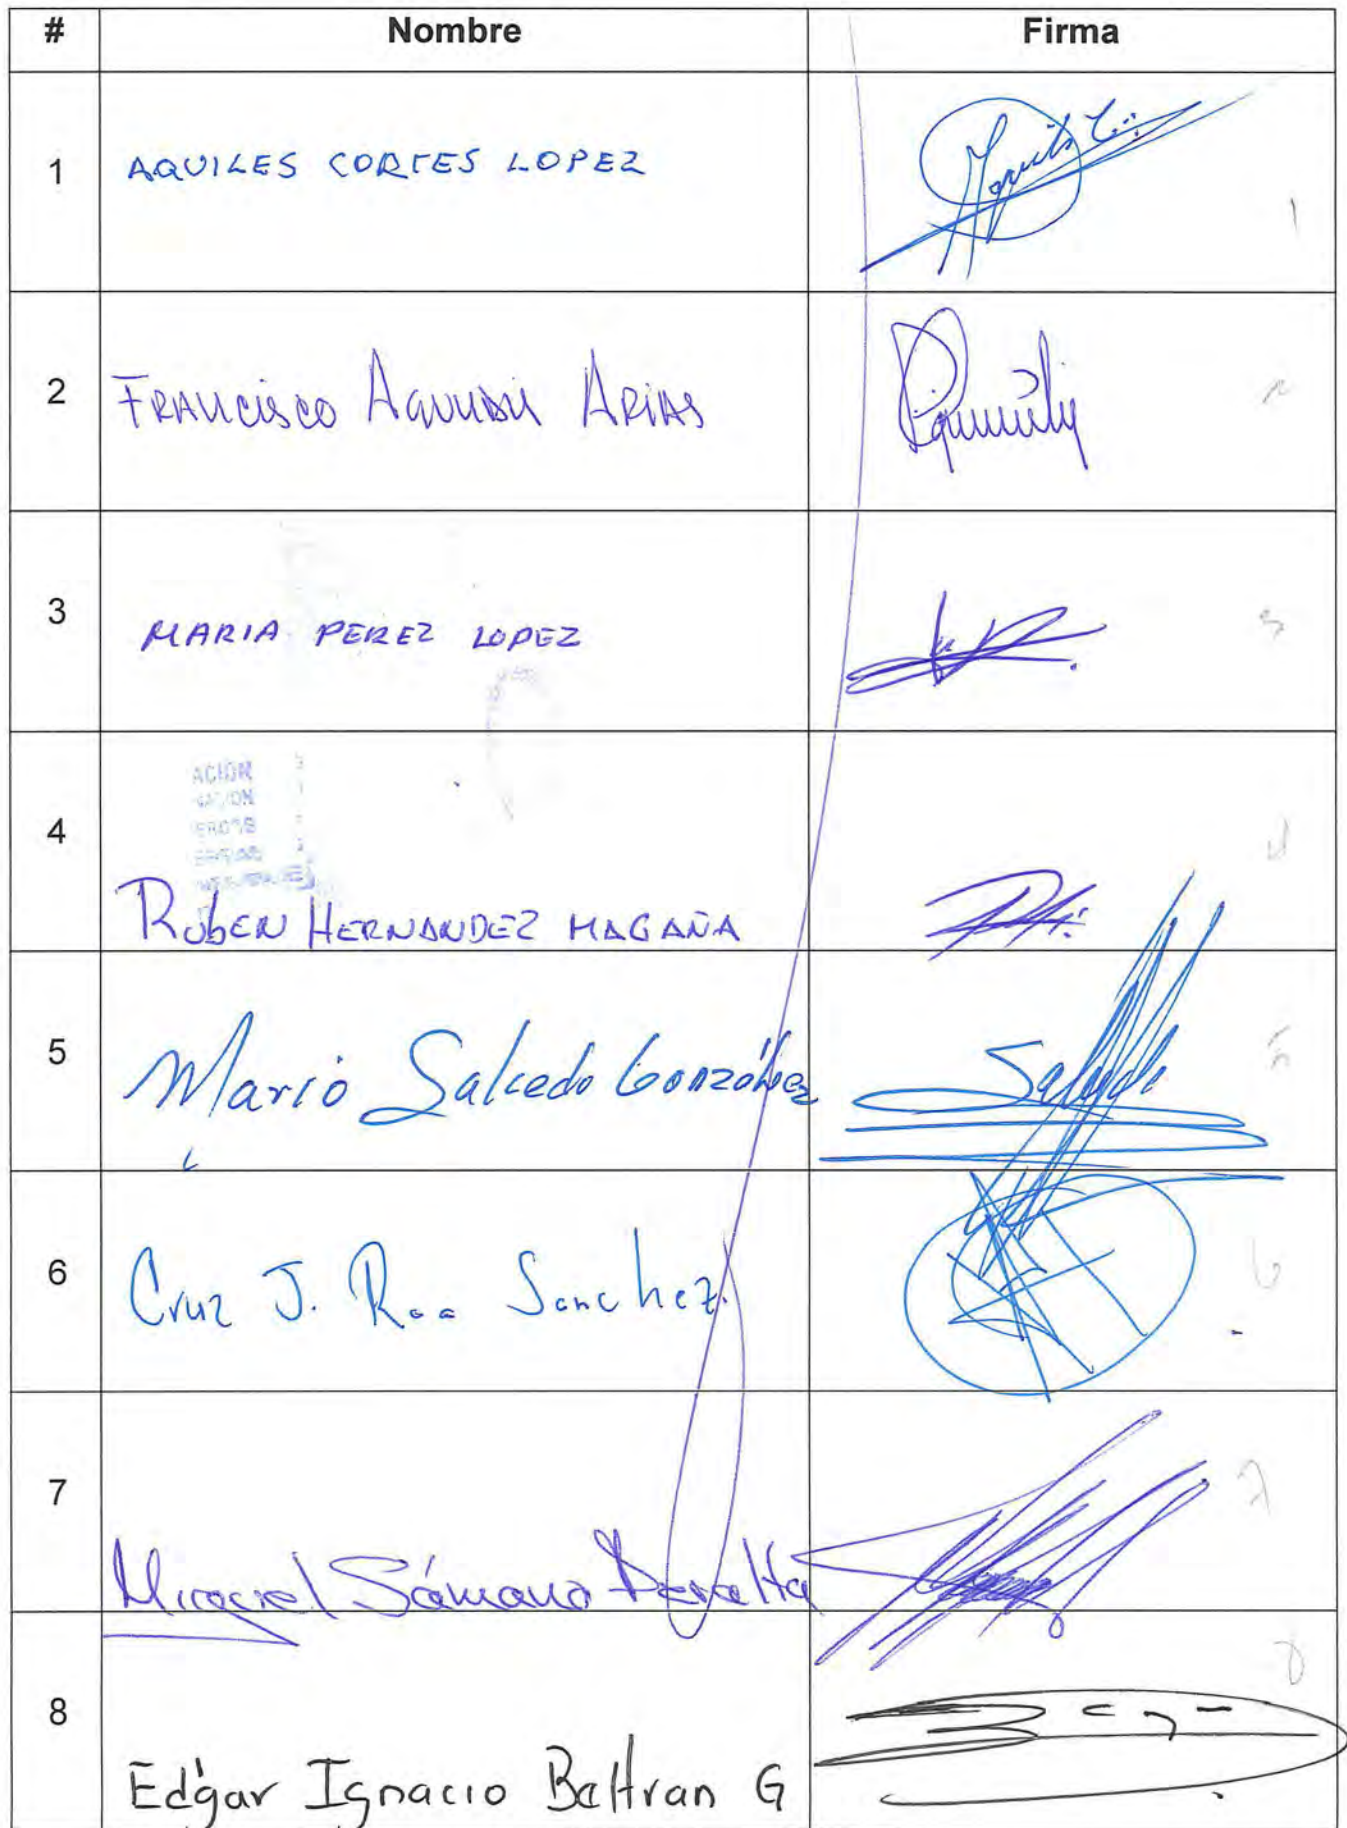 # Nombre Firma
1 AQUILES CORTES LOPEZ
2 FRANCISCO ARIAS
3 MARIA PEREZ LOPEZ
ACION
4
RUBEN HERNANDEZ MAGAÑA
5 Mario Salcedo González Salcedo
6 Cruz J. Roa Sanchez
7
Miguel Sámano Peralta
8
Edgar Ignacio Beltran G